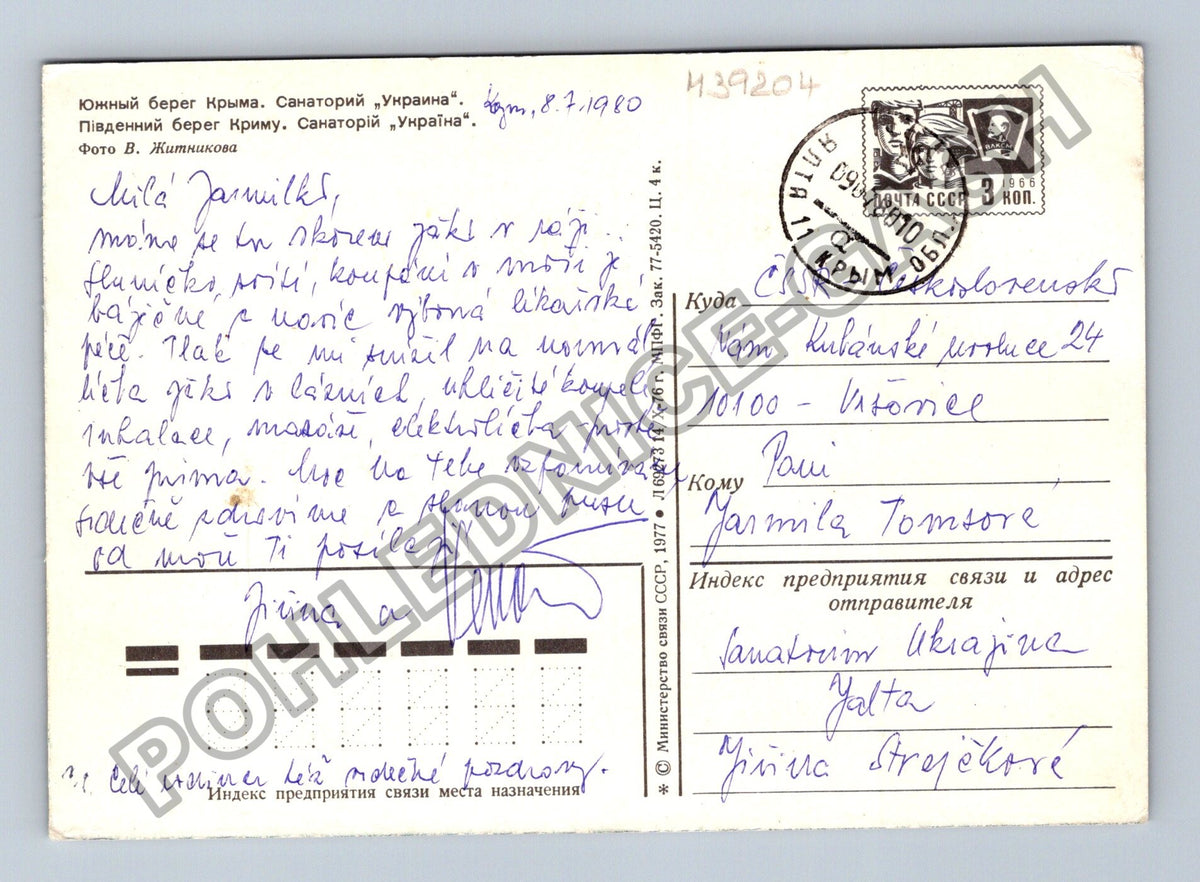 Южный берег Крыма. Санаторий „Украина“.
Південний берег Криму. Санаторій „Україна“.
Фото В. Житникова
8.7.1980
439204
Milá Jarmilko,
máme se tu skoro jako v ráji..
Sluníčko, koupání v moři je
báječné a navíc výborná lékařská
péče. Tlak se mi snížil na normál
léčba jako v lázních, uhličité koupele
inhalace, masáže, elektroléčba - prostě
vše prima. Moc na Tebe vzpomínám
srdečně zdravíme a slanou pusu
od moře Ti posílají
Jiřina a
Celé rodince též srdečné pozdravy.
Индекс предприятия связи места назначения
* © Министерство связи СССР, 1977 ● Л 69273 14/X-76 г. МПФГ. Зак. 77-5420. Ц. 4 к.
ПОЧТА СССР 3 КОП.
1966
ВЛКСМ
ЯЛТА 11 КРЫМ. ОБЛ.
Куда ČSSR Československo
Nám Kubánské revoluce 24
10100 - Vršovice
Кому Paní
Jarmila Tomsová
Индекс предприятия связи и адрес
отправителя
Sanatorium Ukrajina
Jalta
Jiřina Strejčková
POHLEDNICE-CASH